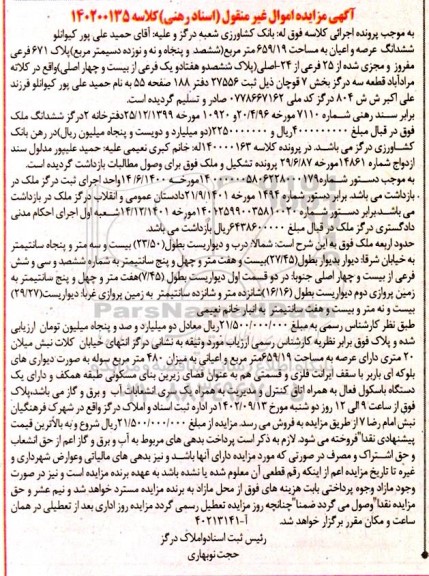 آگهی مزایده اموال غیر منقول (اسناد رهنی) کلاسه ۱۴۰۲۰۰۱۳۵
به موجب پرونده اجرائی کلاسه فوق له: بانک کشاورزی شعبه درگز و علیه: آقای حمید علی پور کیوانلو
ششدانگ عرصه و اعیان به مساحت ۶۵۹/۱۹ متر مربع(ششصد و پنجاه و نه و نوزده دسیمتر مربع)پلاک ۶۷۱ فرعی
مفروز و مجزی شده از ۲۵ فرعی از ۲۴-اصلی(پلاک ششصدو هفتادو یک فرعی از بیست و چهار اصلی)واقع در کلاته
مرادآباد قطعه سه درگز بخش ۷ قوچان ذیل ثبت ۲۷۵۵۶ دفتر ۱۸۸ صفحه ۵۵ به نام حمید علی پور کیوانلو فرزند
علی اکبر ش ش ۸۰۴ درگز کد ملی ۰۷۷۸۶۶۷۱۶۲ صادر و تسلیم گردیده است.
برابر سند رهنی شماره ۷۱۱۰ مورخ ۲۰/۴/۹۶ و ۱۰۹۲۰ مورخه ۲۵/۱۲/۱۳۹۹دفترخانه ۲درگز ششدانگ ملک
فوق در قبال مبلغ ۴۰۰۰۰۰۰۰۰۰ریال و ۲۲۵۰۰۰۰۰۰۰(دو میلیارد و دویست و پنجاه میلیون ریال)در رهن بانک
کشاورزی درگز می باشد. در پرونده کلاسه ۱۴۰۰۰۰۱۶۳له: خانم کبری نعیمی علیه: حمید علیپور مدلول سند
ازدواج شماره ۱۴۸۶۱مورخه ۲۹/۶/۸۷ پرونده تشکیل و ملک فوق برای وصول مطالبات بازداشت گردیده است.
به موجب دستور شماره ۱۴۰۰۰۰۰۰۵۸۰۶۲۲۸۰۰۱۷۹مورخه ۱۴/۶/۱۴۰۰واحد اجرای ثبت درگز ملک در
بازداشت می باشد. برابر دستور شماره ۱۴۹۴ مورخه ۲۱/۹/۱۴۰۱دادستان عمومی و انقلاب درگز ملک در بازداشت
می باشد.برابر دستور شماره ۱۴۰۱۲۵۹۹۰۰۳۵۸۱۰۰۲۰مورخه ۱۴/۱۲/۱۴۰۱شعبه اول اجرای احکام مدنی
دادگستری درگز ملک در قبال مبلغ ۶۴۳۸۶۰۰۰۰۰ریال بازداشت می باشد.
حدود اربعه ملک فوق به این شرح است: شمالا: درب و دیواریست بطول(۲۳/۵۰) بیست و سه متر و پنجاه سانتیمتر
به خیابان شرقا: دیوار بدیوار بطول(۲۷/۴۵)بیست و هفت متر و چهل و پنج سانتیمتر به شماره ششصد و سی و شش
فرعی از بیست و چهار اصلی جنوبا: در دو قسمت اول دیواریست بطول (۷/۴۵)هفت متر و چهل و پنج سانتیمتر به
زمین پروازی دوم دیواریست بطول (۱۶/۱۶)شانزده متر و شانزده سانتیمتر به زمین پروازی غربا: دیواریست(۲۹/۲۷)
بیست و نه متر و بیست و هفت سانتیمتر به انبار خانم نعیمی
طبق نظر کارشناس رسمی به مبلغ ۲۱/۵۰۰/۰۰۰/۰۰۰ریال معادل دو میلیارد و صد و پنجاه میلیون تومان ارزیابی
شده و پلاک فوق برابر نظریه کارشناس رسمی ارزیاب مورد وثیقه به نشانی درگز انتهای خیابان کلات نبش میلان
۲۰ متری دارای عرصه به مساحت ۶۵۹/۱۹متر مربع و اعیانی به میزان ۴۸۰ متر مربع سوله به صورت دیواری های
بلوکه ای باربر با سقف ایرانت فلزی و قسمتی هم به عنوان فضای زیرین بنای مسکونی طبقه همکف و دارای یک
دستگاه باسکول فعال به همراه اتاق کنترل و مدیریت به همراه یک سری انشعابات آب و برق و گاز می باشد،پلاک
فوق از ساعت ۹ الی ۱۲ روز دو شنبه مورخ ۱۴۰۲/۰۹/۱۳در اداره ثبت اسناد و املاک درگز واقع در شهرک فرهنگیان
نبش امام رضا ۷ از طریق مزایده به فروش می رسد. مزایده از مبلغ ۲۱/۵۰۰/۰۰۰/۰۰۰ریال شروع و به بالاترین قیمت
پیشنهادی نقدا"فروخته می شود. لازم به ذکر است پرداخت بدهی های مربوط به آب و برق و گاز اعم از حق انشعاب
و حق اشتراک و مصرف در صورتی که مورد مزایده دارای آنها باشد و نیز بدهی های مالیاتی و عوارض شهرداری و
غیره تا تاریخ مزایده اعم از اینکه رقم قطعی آن معلوم شده یا نشده باشد به عهده برنده مزایده است و نیز در صورت
وجود مازاد وجوه پرداختی بابت هزینه های فوق از محل مازاد به برنده مزایده مسترد خواهد شد و نیم عشر و حق
مزایده نقدا"وصول می گردد ضمنا" چنانچه روز مزایده تعطیل رسمی گردد مزایده روز اداری بعد از تعطیلی در همان
ساعت و مکان مقرر برگزار خواهد شد. آ-۴۰۲۱۳۱۴۱
رئیس ثبت اسناد واملاک درگز
حجت نوبهاری